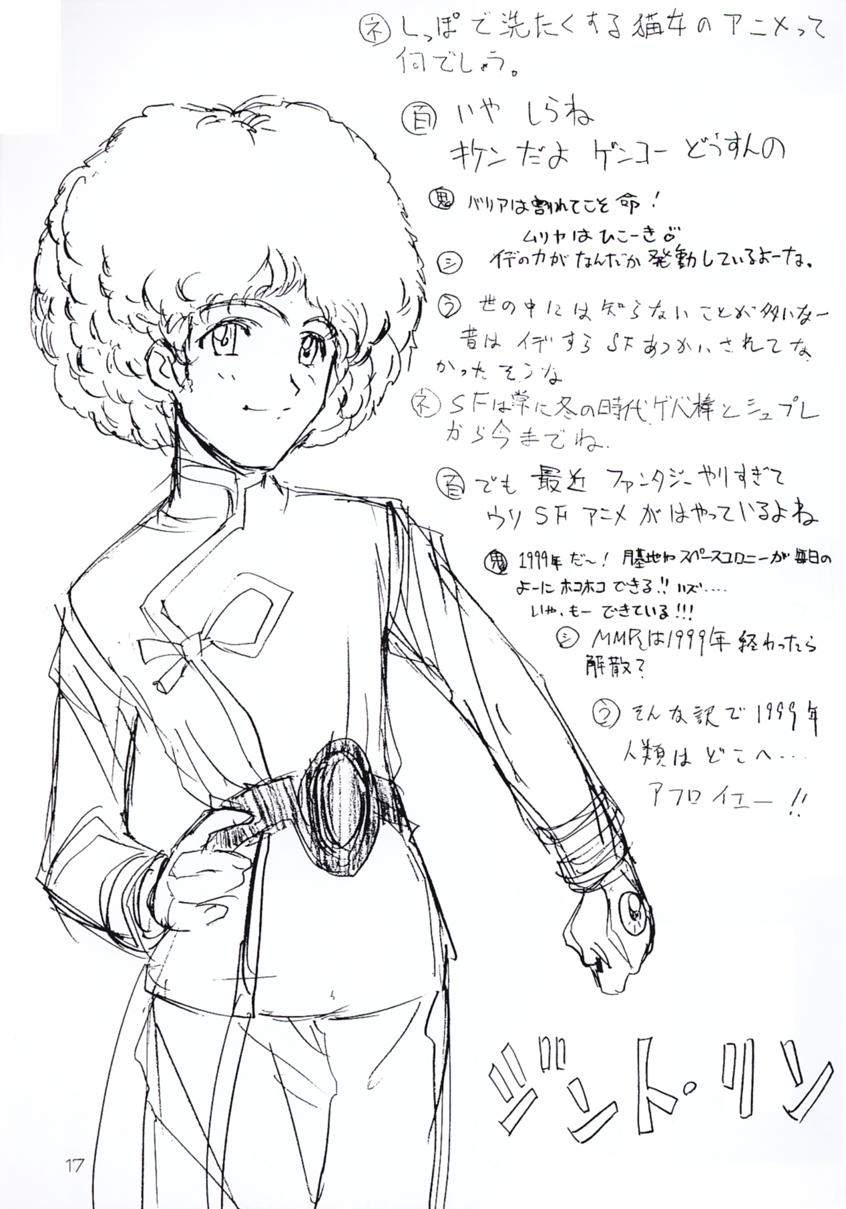 ネ しっぽで洗たくする猫女のアニメって
何でしょう。
百 いや しらね
キケンだよ ゲンコー どうすんの
鬼 バリアは割れてこそ命!
ムリヤはひこーき
シ イデの力がなんだか発動しているよーな。
う 世の中には知らないことが多いなー
昔は イデすら SFあつかいされてな
かったそうな
ネ SFは常に冬の時代、ゲバ棒とシュプレ
から今までね.
百 でも 最近 ファンタジーやりすぎて
ウソSFアニメがはやっているよね
鬼 1999年だ〜! 月基地やスペースコロニーが毎日の
よーにホコホコできる!! ハズ....
いや、もー できている!!!
シ MMRは1999年終わったら
解散?
う そんな訳で1999年
人類はどこへ....
アフロイエー!!
ジント・リン
17